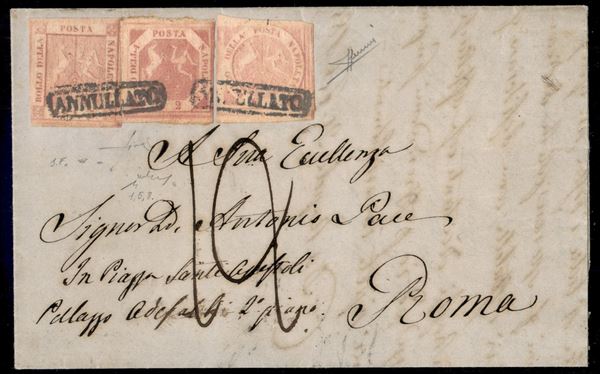 BOLLO DELLA POSTA NAPOLETANA
BOLLO DELLA POSTA NAPOLETANA
2
DELLA POSTA NAPOLETANA
ANNULLATO
ANNULLATO
A Sua Eccellenza
Signor D. Antonio Pace
In Piazza Santi Apostoli
Pallazzo 2º piano
Roma